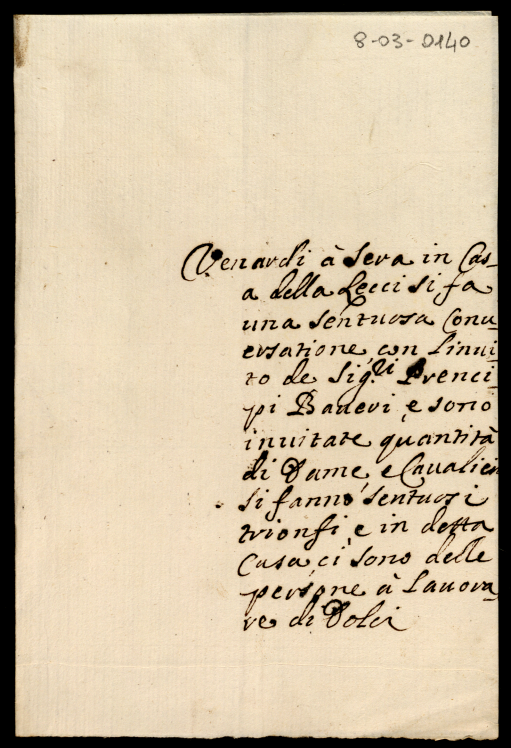 8-03-D140
Venardi à sera in Cas-
a della Lecci si fa
una sentuosa Conu-
ersatione, con l'inui-
to de Sig.li Prenci-
pi Baueri, e sono
inuitate quantità
di Dame, e Caualieri
si fanno sentuosi
trionfi, e in detta
Casa, ci sono delle
persone à Lauora-
re di Dolci